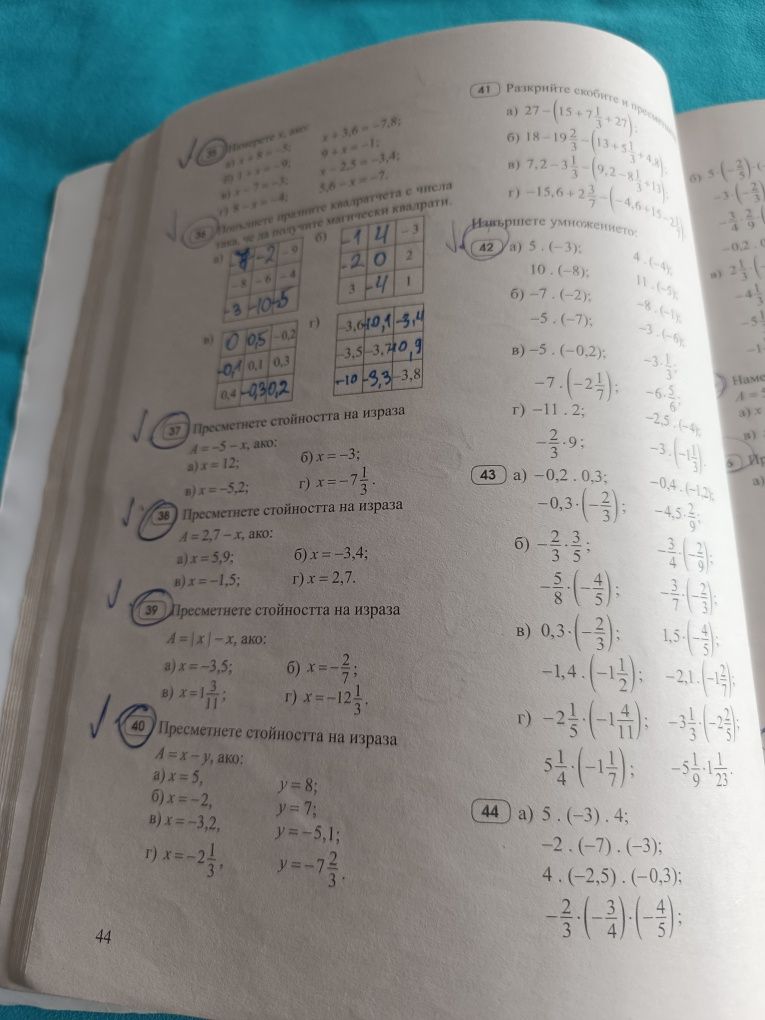 35 Намерете x, ако:
а) x + 8 = −5; x + 3,6 = −7,8;
б) 1 + x = −9; 9 + x = −1;
в) x − 7 = −3; x − 2,5 = −3,4;
г) 8 − x = −4; 5,6 − x = −7.
36 Попълнете празните квадратчета с числа
така, че да получите магически квадрати.
а) б)
−7 −2 −9
−8 −6 −4
−3 −10 −5
−1 4 −3
−2 0 2
3 −4 1
в) г)
0 0,5 −0,2
−0,1 0,1 0,3
0,4 −0,3 0,2
−3,6 −3,4
−3,5
−3,3 −3,8
37 Пресметнете стойността на израза
A = −5 − x, ако:
а) x = 12; б) x = −3;
в) x = −5,2; г) x = −7 1/3.
38 Пресметнете стойността на израза
A = 2,7 − x, ако:
а) x = 5,9; б) x = −3,4;
в) x = −1,5; г) x = 2,7.
39 Пресметнете стойността на израза
A = |x| − x, ако:
а) x = −3,5; б) x = −2/7;
в) x = 1 3/11; г) x = −12 1/3.
40 Пресметнете стойността на израза
A = x − y, ако:
а) x = 5, y = 8;
б) x = −2, y = 7;
в) x = −3,2, y = −5,1;
г) x = −2 1/3, y = −7 2/3.
44
41 Разкрийте скобите и
а) 27 − (15 + 7 1/3 + 27);
б) 18 − 19 2/3 − (13 + 5 1/3 + 4,8);
в) 7,2 − 3 1/3 − (9,2 − 8 1/3 + 13);
г) −15,6 + 2 3/7 − (−4,6 + 15 −
Извършете умножението:
42 а) 5 . (−3); 4 . (−4);
10 . (−8); 11 . (−5);
б) −7 . (−2); −8 . (−1);
−5 . (−7); −3 . (−6);
в) −5 . (−0,2); −3 · 1/3;
−7 . (−2 1/7); −6 · 5/6;
г) −11 . 2; −2,5 . (−4);
−2/3 · 9; −3 . (−1 1/3).
43 а) −0,2 . 0,3; −0,4 . (−1,2);
−0,3 · (−2/3); −4,5 · 2/9;
б) −2/3 · 3/5; −3/4 · (−2/9);
−5/8 · (−4/5); −3/7 · (−2/3);
в) 0,3 · (−2/3); 1,5 · (−4/5);
−1,4 . (−1 1/2); −2,1 . (−1 2/7);
г) −2 1/5 · (−1 4/11); −3 1/3 · (−2 2/5);
5 1/4 · (−1 1/7); −5 1/9 · 1 1/23.
44 а) 5 . (−3) . 4;
−2 . (−7) . (−3);
4 . (−2,5) . (−0,3);
−2/3 · (−3/4) · (−4/5);